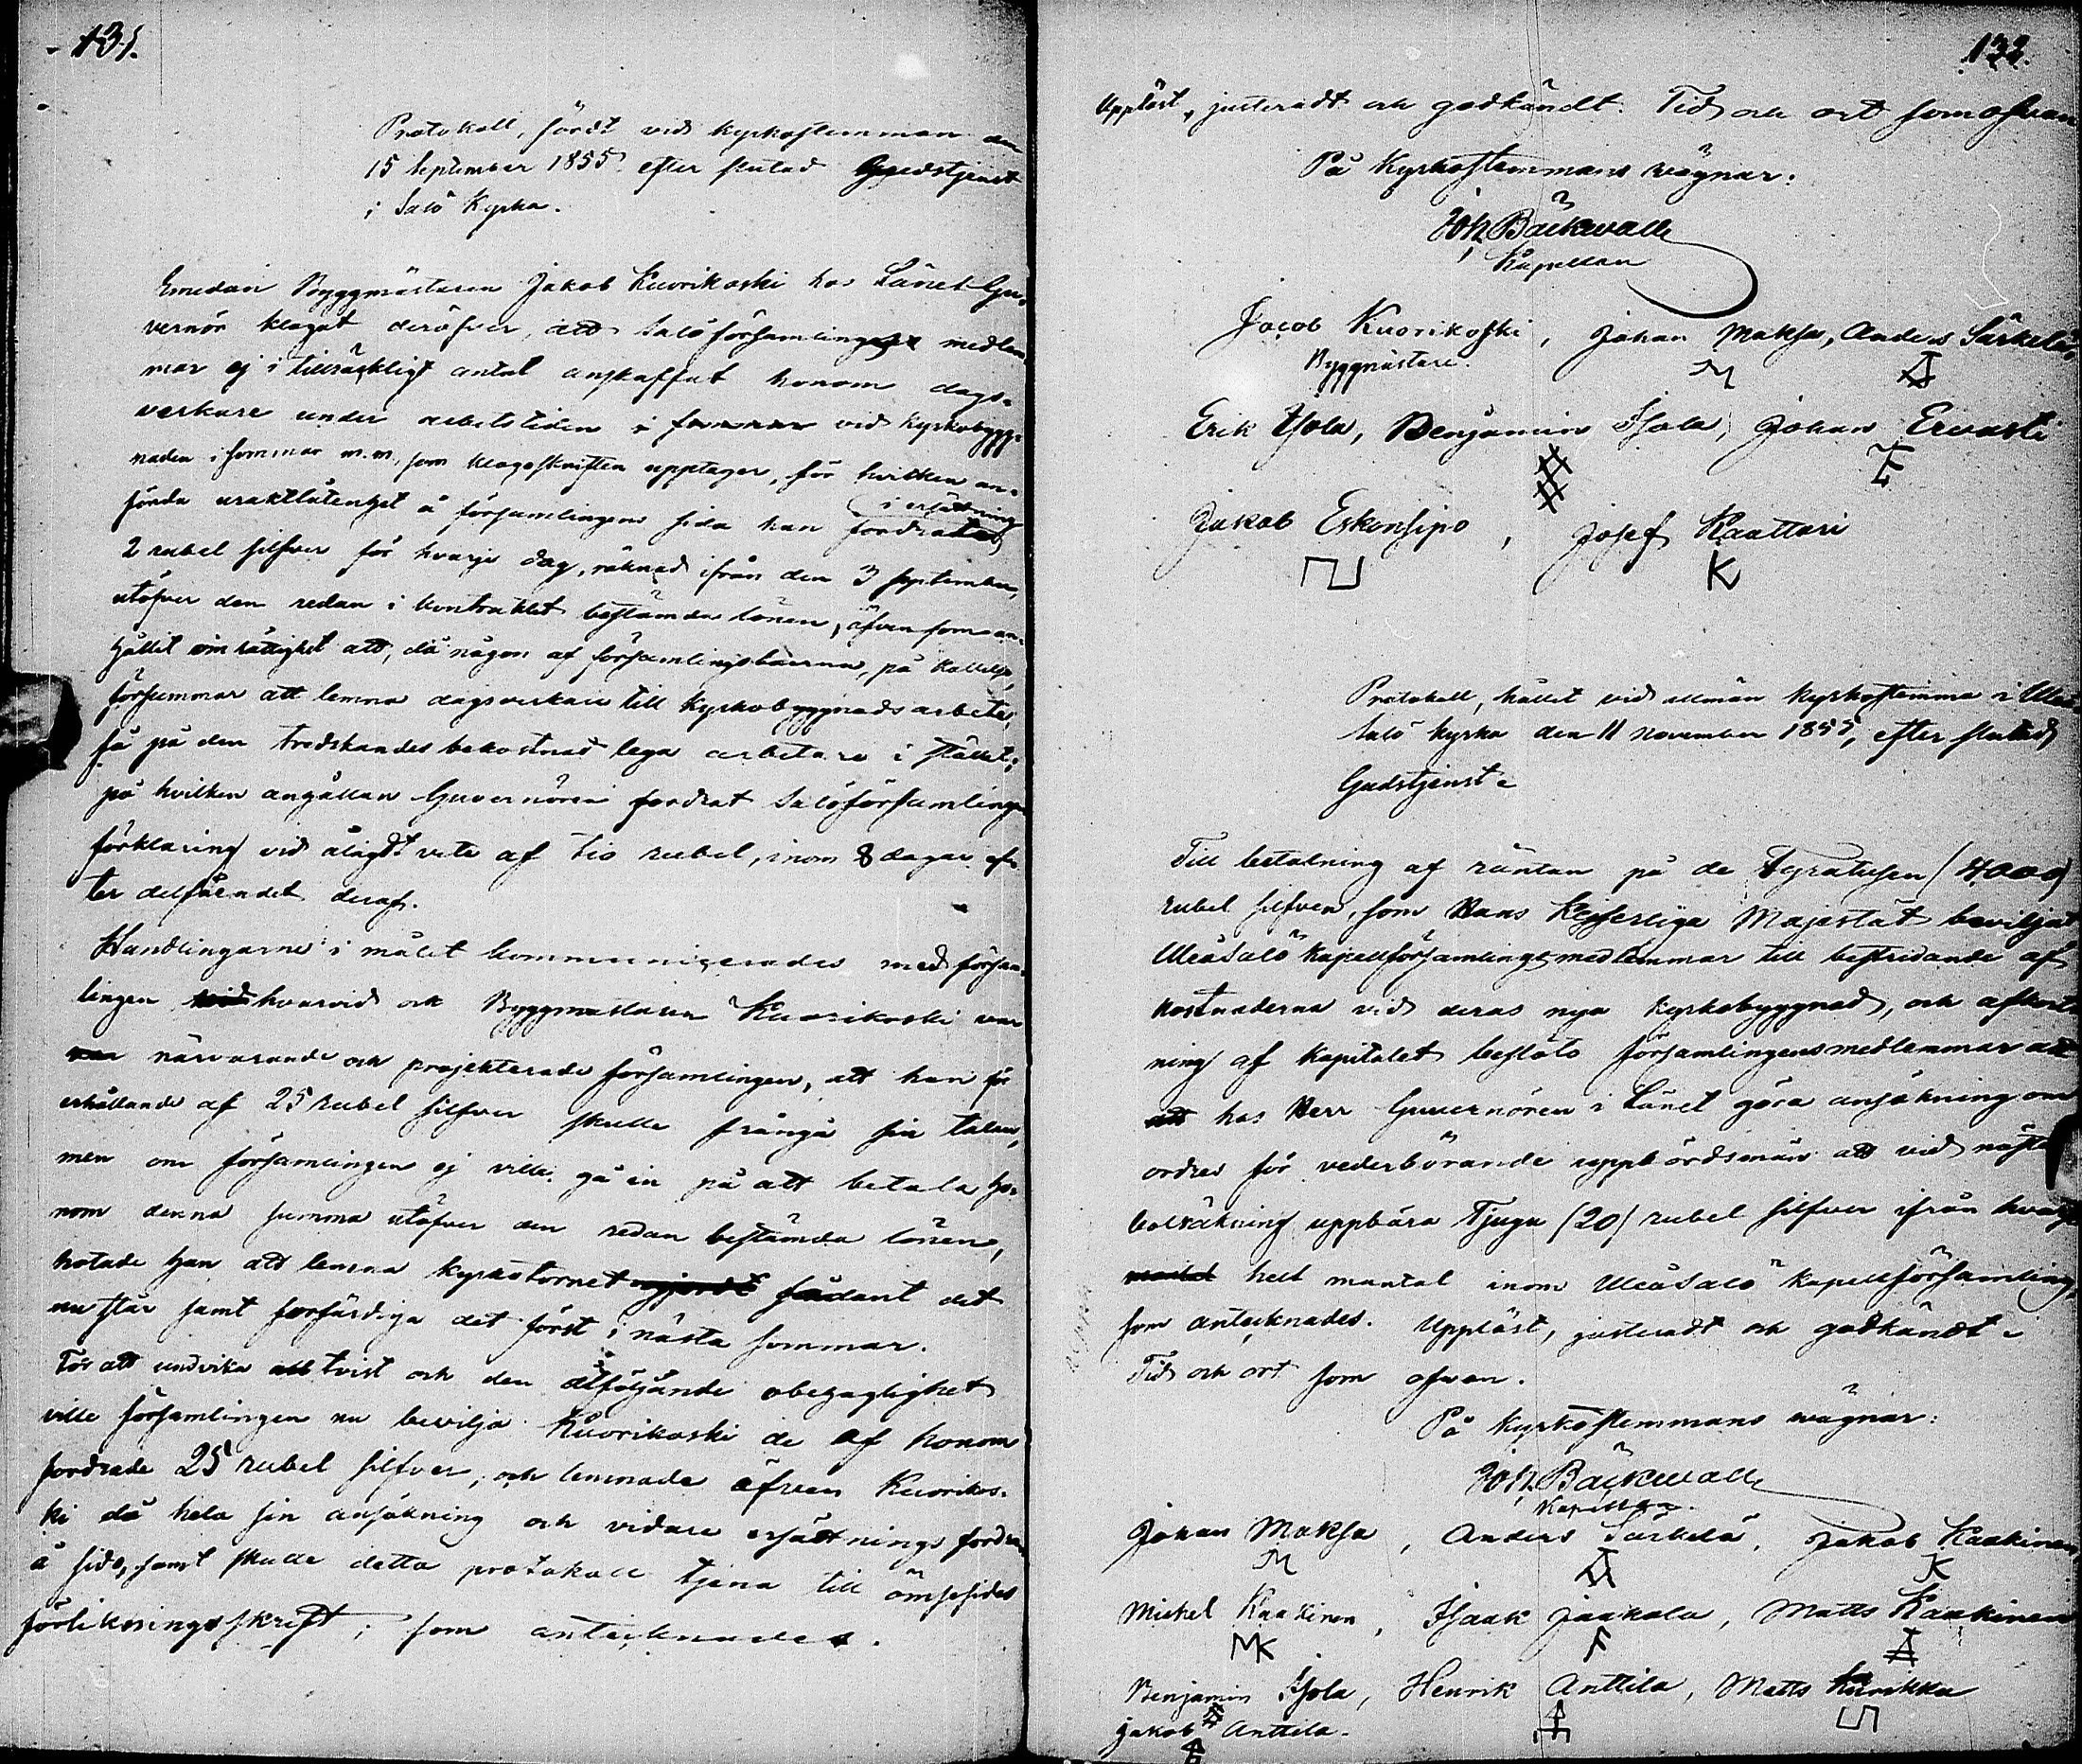 131.
Protokoll, fördt vid kyrkostemman den
15 September 1855 efter slutad Gudstjenst
i Salo Kyrka.
Emedan Byggmästaren Jakob Kuorikoski hos Länets Gu-
vernör klagat deröfver, att Salo församlings medlem-
mar ej i tillräckligt antal anskaffat honom dags-
verkare under arbetstiden vid kyrkobygg-
naden i sommar m.m. som klagoskriften upptager, för hvilken an-
förda uraktlåtenhet å församlingens sida han i ersättning fordrat
2 rubel silfver för hvarje dag, räknad ifrån den 3 September,
utöfver den redan i kontraktet bestämda lönen, äfvensom an-
hållit om rättighet att, då någon af församlingsboerna, på kallelse,
försummar att lemna dagsverkare till kyrkobyggnads arbete,
få på den tredskandes bekostnad lega arbetare i stället;
på hvilken angållan Guvernören fordrat Salo församlings
förklaring vid ålagdt vite af tio rubel, inom 8 dagar ef-
ter delfåendet deraf.
Handlingarne i målet kommunicerades med försam-
lingen hvarvid och Byggmästaren Kuorikoski var
närvarande och projekterade församlingen, att han för
erhållande af 25 rubel silfver skulle frångå sin talan,
men om församlingen ej ville gå in på att betala ho-
nom denna summa utöfver den redan bestämda lönen,
hotade han att lemna kyrkotornet sådant det
nu står samt forfärdiga det först i nästa sommar.
För att undvika all tvist och den åtföljande obehaglighet
ville församlingen nu bevilja Kuorikoski de af honom
fordrade 25 rubel silfver, och lemnade äfven Kuorikos-
ki då hela sin ansökning och vidare ersättnings fordran
å sido, samt skulle detta protokoll tjena till ömsesides
förlikningsskrift; som antecknades.
132.
Uppläst, justeradt och godkändt. Tid och ort som ofvan
På Kyrkostemmans vägnar:
Joh. Bäckwall
Kapellan
Jacob Kuorikoski, Johan Maksa, Anders Särkelä,
Byggmästare. M A
Erik Isola, Benjamin Isola, Johan Ervasti
Jakob Eskonsipo, Josef Kaattari
K
Protokoll, hållet vid allmän kyrkostemma i Uleå
Salo kyrka den 11 November 1855, efter slutad
Gudstjenst.
Till betalning af räntan på de Fyratusen (4000)
rubel silfver, som Hans Kejserliga Majestät beviljat
UleåSalo Kapellförsamlings medlemmar till bestridande af
kostnaderna vid deras nya kyrkobyggnad, och afkort-
ning af kapitalet beslöto församlingens medlemmar att
hos Herr Guvernören i Länet göra ansökning om
ordres för vederbörande uppbördsmän att vid nästa
bolräkning uppbära Tjugu (20) rubel silfver ifrån hvarje
helt mantal inom UleåSalo kapellförsamling,
som antecknades. Uppläst, justeradt och godkändt.
Tid och ort som ofvan.
På kyrkostemmans vägnar:
Joh. Bäckwall
Kapellan.
Johan Maksa, Anders Särkelä, Jakob Kaakinen,
M A K
Michel Kaakinen, Isaak Jaakola, Matts Kaakinen
MK
Benjamin Isola, Henrik Anttila, Matts Kurikka
Jakob Anttila.